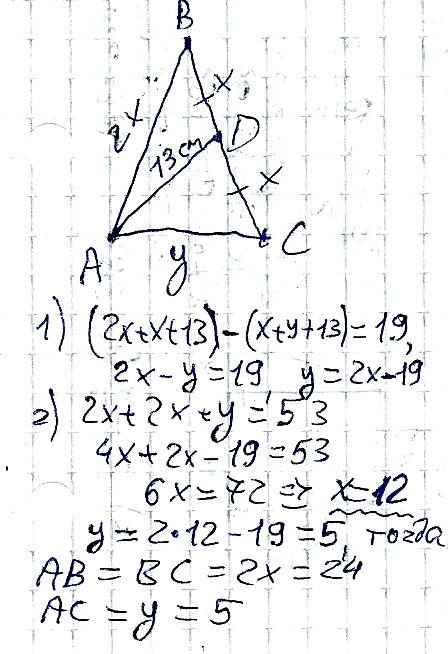 B
2x
x
13 см
D
x
A
y
C
1) (2x+x+13)-(x+y+13)=19,
2x-y=19 y=2x-19
2) 2x+2x+y=53
4x+2x-19=53
6x=72 => x=12
y=2·12-19=5, тогда
AB=BC=2x=24
AC=y=5